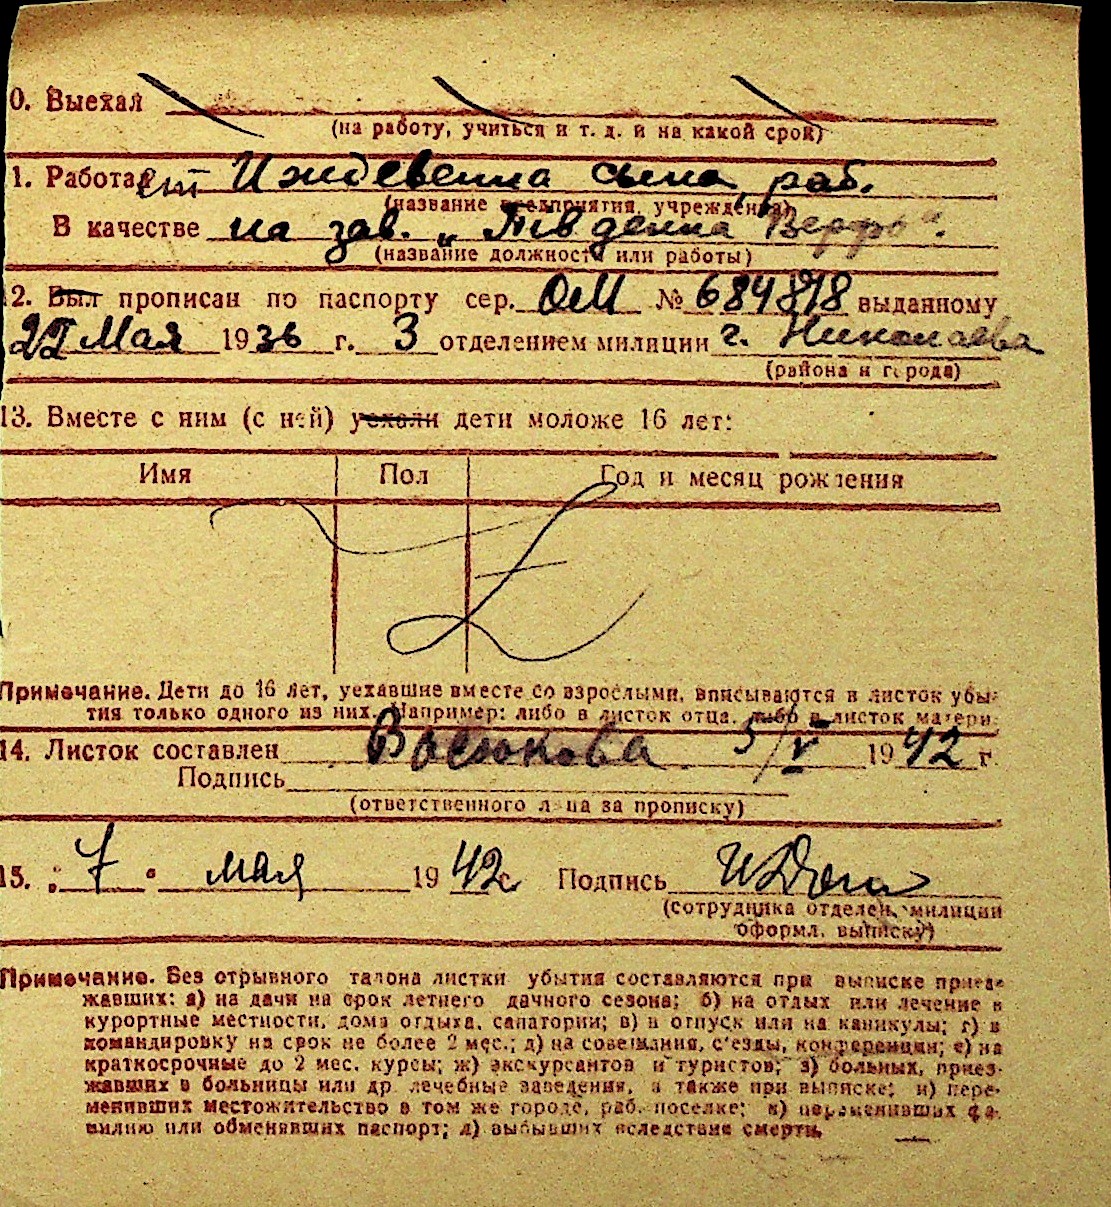 0. Выехал
(на работу, учиться и т. д. и на какой срок)
1. Работает Иждевенна сына, раб.
(название предприятия, учреждения)
В качестве на зав. „ Верфь“.
(название должности или работы)
2. Был прописан по паспорту сер. ОМ № 684878 выданному
Мая 1936 г. 3 отделением милиции г. Николаева
(района и города)
13. Вместе с ним (с ней) уехали дети моложе 16 лет:
Имя Пол Год и месяц рождения
Примечание. Дети до 16 лет, уехавшие вместе со взрослыми, вписываются в листок убы-
тия только одного из них. Например: либо в листок отца, либо в листок матери.
14. Листок составлен 5/V 1942 г
Подпись
(ответственного лица за прописку)
15. „7“ мая 1942 г. Подпись
(сотрудника отделен. милиции
оформл. выписку)
Примечание. Без отрывного талона листки убытия составляются при выписке приез-
жавших: а) на дачи на срок летнего дачного сезона; б) на отдых или лечение в
курортные местности, дома отдыха, санатории; в) в отпуск или на каникулы; г) в
командировку на срок не более 2 мес.; д) на совещания, с'езды, конференции; е) на
краткосрочные до 2 мес. курсы; ж) экскурсантов и туристов; з) больных, приез-
жавших в больницы или др. лечебные заведения, а также при выписке; и) пере-
менивших местожительство в том же городе, раб. поселке; к) переменивших фа-
милию или обменявших паспорт; л) выбывших вследствие смерти.